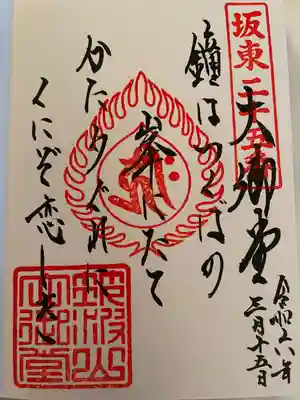 坂東二十五番
大御堂
令和六年
三月十五日
鐘はつくばの
峯にたて
かた夕ぐれに
くにぞ恋しき
筑波山
大御堂